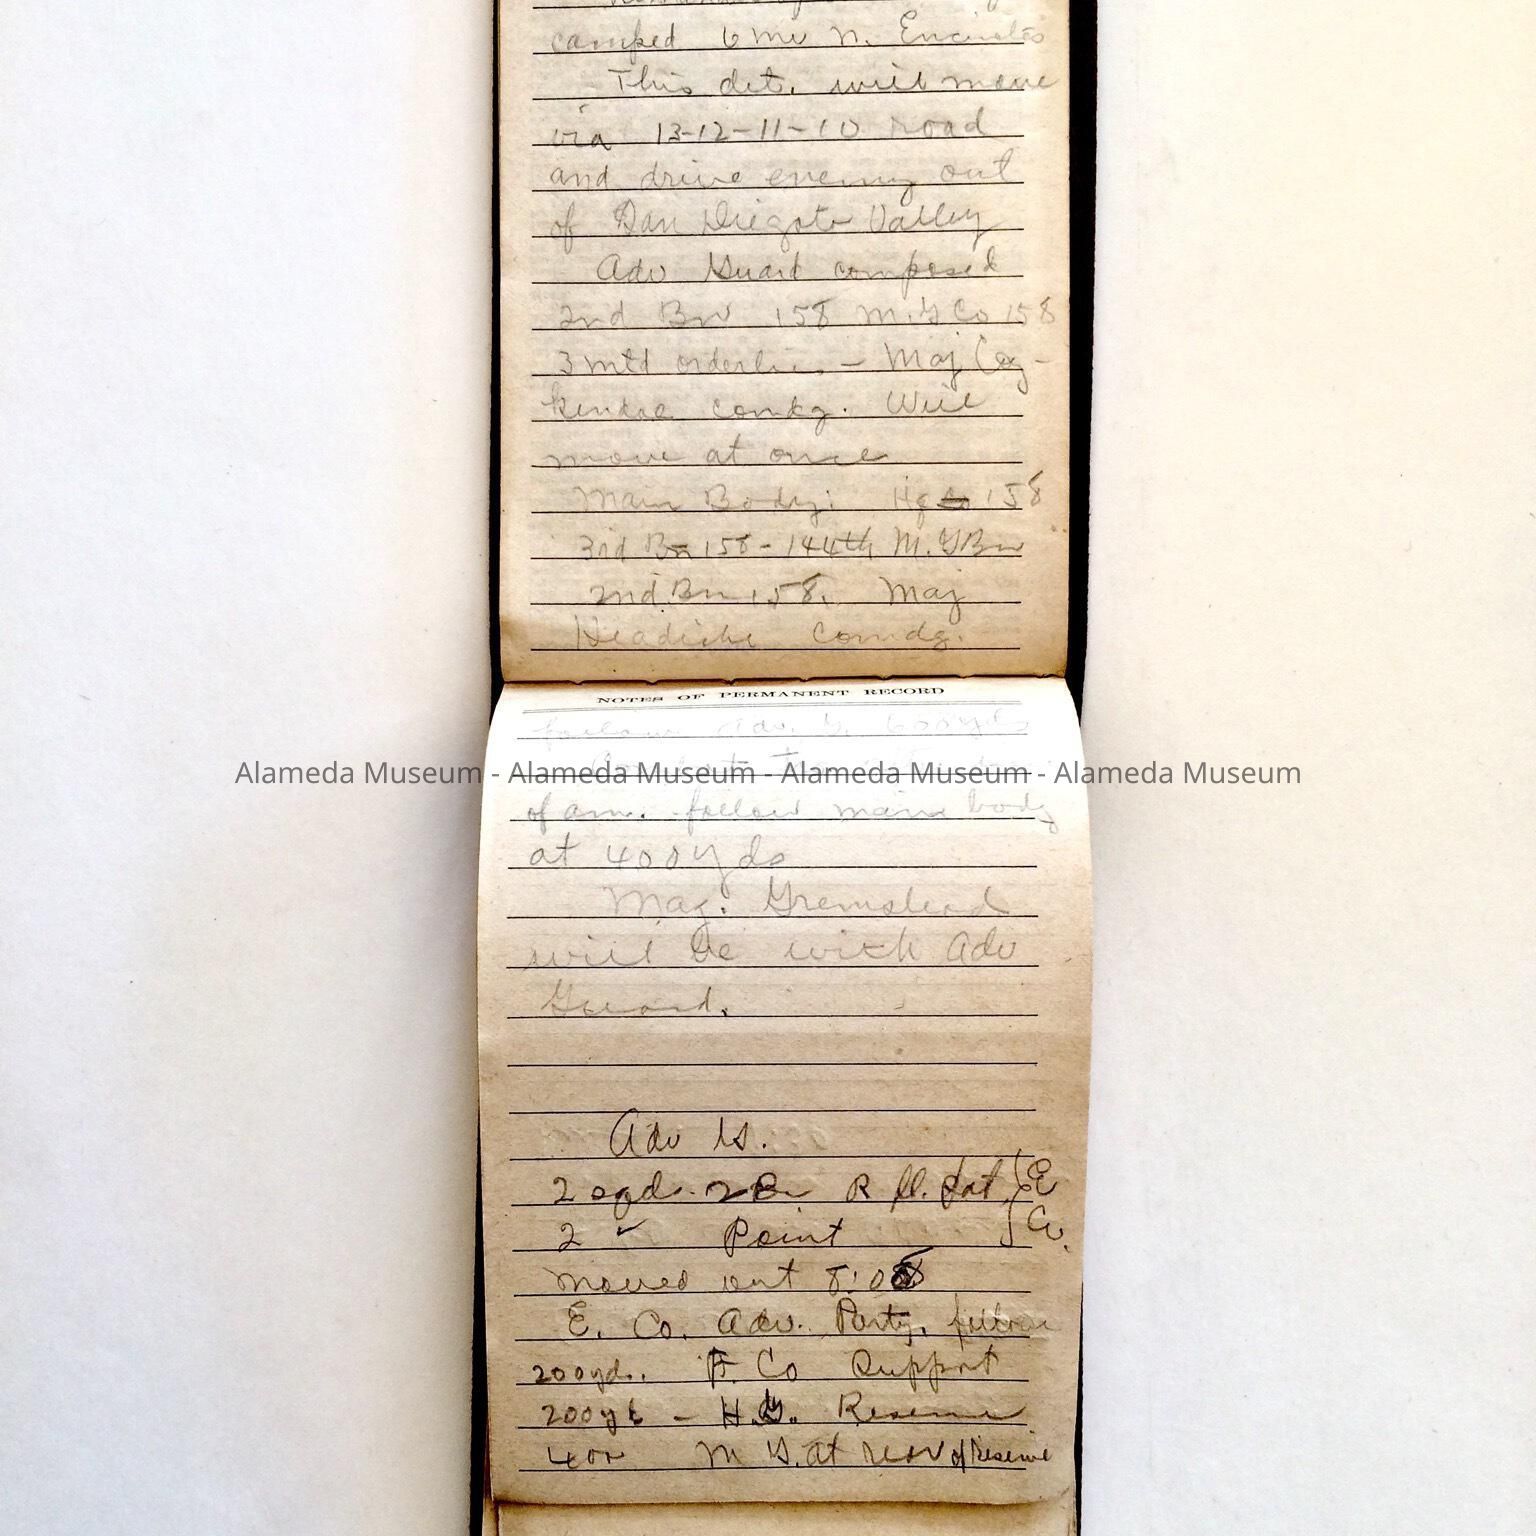 camped 6 mi N. Encinitas
This det. will move
via 13-12-11-10 road
and drive enemy out
of San Diegoto Valley
Adv Guard composed
2nd Bn 158 M.G Co 158
3 mtd orderlies - Maj
comdg. Will
move at once
Main Body: Hq 158
3rd Bn 158 - 144th M.G Bn
2nd Bn 158. Maj
Comdg.
NOTES OF PERMANENT RECORD
follow Adv. G. 600 yds
Alameda Museum - Alameda Museum - Alameda Museum - Alameda Museum
of am. follow main body
at 400 yds
Maj. Gremstead
will be with Adv
Guard.
Adv G.
2 sqd. 2 Bn R fl. Pat. } E
2 " Point } Co.
Moved out 8:08
E. Co. Adv. Party, follow
200 yd.. F. Co Support
200 yd - H.G. Reserve
400 M G. at rear of Reserve